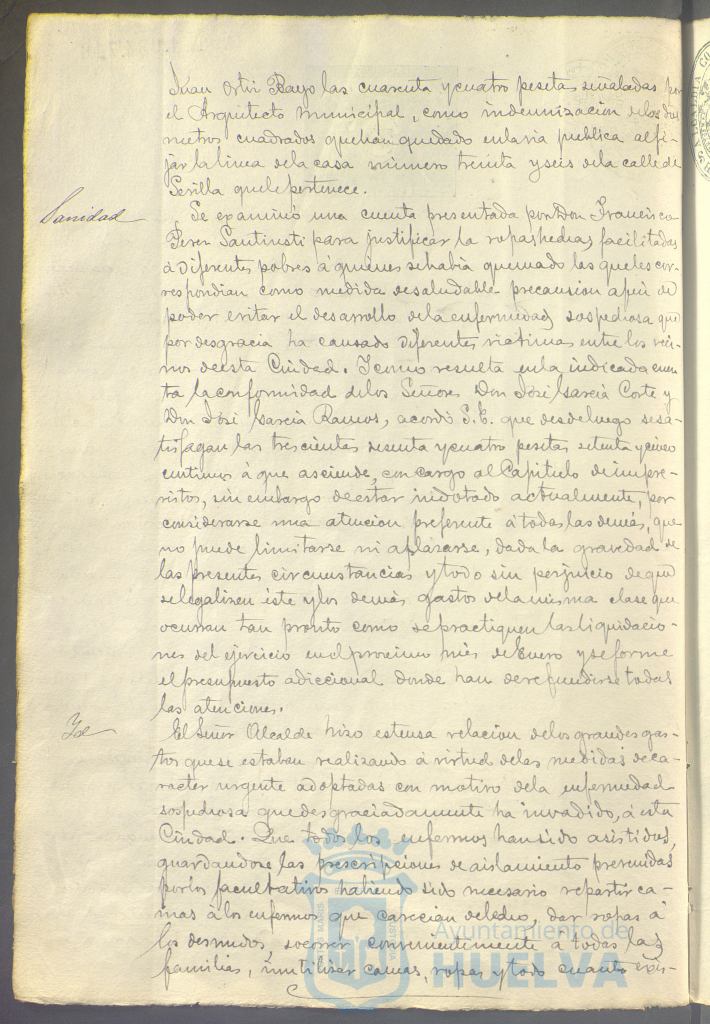 Juan Ortiz Bayo las cuarenta y cuatro pesetas señaladas por
el Arquitecto municipal, como indemnizacion de los dos
metros cuadrados que han quedado en la via publica al fi-
jar la linea de la casa número treinta y seis de la calle de
Sevilla que le pertenece.
Sanidad
Se examinó una cuenta presentada por Don Francisco
Perez Santiusti para justificar la ropas hechas facilitadas
á diferentes pobres á quienes se habia quemado las que les cor-
respondian como medida de saludable precausion á fin de
poder evitar el desarrollo de la enfermedad sospechosa que
por desgracia ha causado diferentes victimas entre los veci-
nos de esta Ciudad. Y como resulta en la indicada cuen-
ta la conformidad de los Señores Don José Garcia Corte y
Don José Garcia Ramos, acordó S.E. que desde luego se sa-
tisfagan las trescientas sesenta y cuatro pesetas setenta y cinco
centimos á que asciende, con cargo al Capitulo de impre-
vistos, sin embargo de estar indotado actualmente, por
considerarse una atencion preferente á todas las demás, que
no puede limitarse ni aplazarse, dada la gravedad de
las presentes circunstancias y todo sin perjuicio de que
se legalizen éste y los demás gastos de la misma clase que
ocurran tan pronto como se practiquen las liquidacio-
nes del ejercicio en el proximo mes de Enero y se forme
el presupuesto adiccional donde han de refundirse todas
las atenciones.
Id
El Señor Alcalde hizo estensa relacion de los grandes gas-
tos que se estaban realizando á virtud de las medidas de ca-
racter urgente adoptadas con motivo de la enfermedad
sospechosa que desgraciadamente ha invadido, á esta
Ciudad. Que todos los enfermos han sido asistidos,
guardandose las prescripciones de aislamiento prevenidas
por los facultativos habiendo sido necesario repartir ca-
mas á los enfermos que carecian de lecho, dar ropas á
los desnudos, socorrer convenientemente á todas las
familias, inutilizar camas, ropas y todo cuanto exis-
Ayuntamiento de
HUELVA